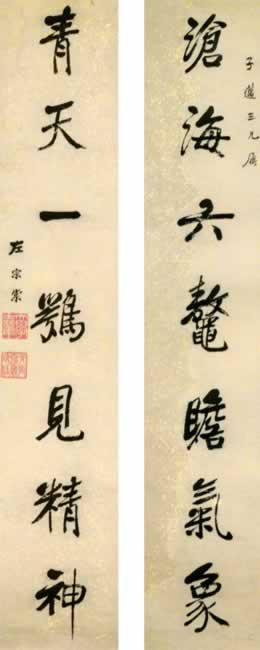 子三兄屬
滄海六鼇瞻氣象
青天一鶚見精神
左宗棠